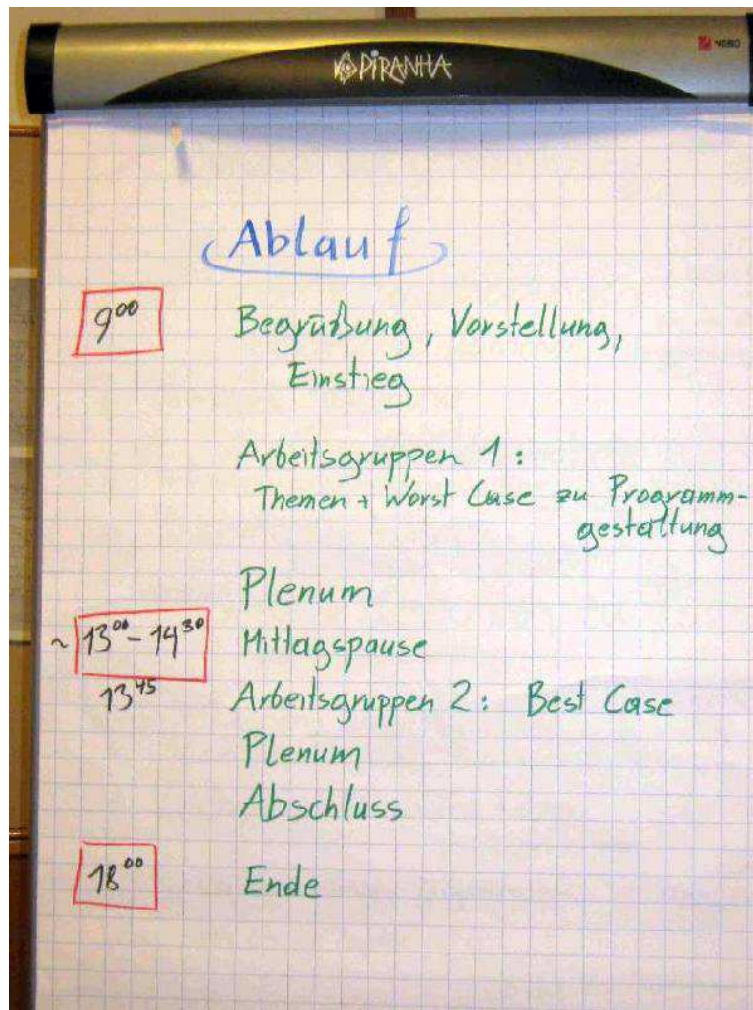 PIRANHA
Ablauf
9⁰⁰ Begrüßung, Vorstellung,
Einstieg
Arbeitsgruppen 1:
Themen + Worst Case zu Programm-
gestaltung
Plenum
~ 13⁰⁰ - 14³⁰ Mittagspause
13⁴⁵ Arbeitsgruppen 2: Best Case
Plenum
Abschluss
18⁰⁰ Ende